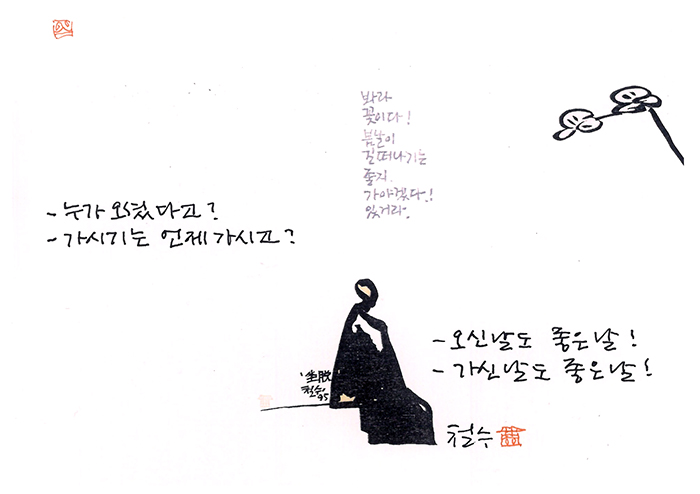 봐라
꽃이다!
봄날이
길떠나기는
좋지.
가야겠다!
있거라.
- 누가 오셨다고?
- 가시기는 언제 가시고?
- 오신날도 좋은날!
- 가신날도 좋은날!
'坐脫
철수.
95
철수